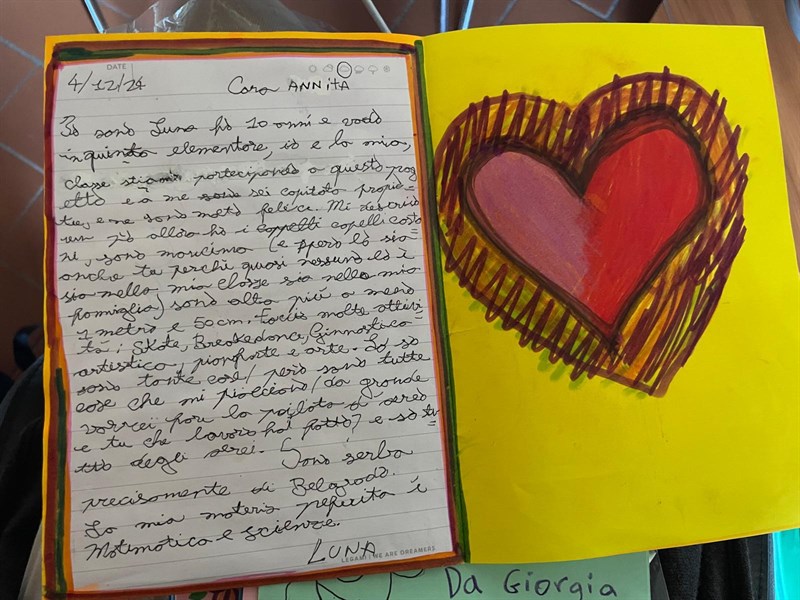 DATE
4/12/24
Cara ANNITA
Io sono Luna ho 10 anni e vado
in quinta elementare, io e la mia,
classe stiamo partecipando a questo prog
etto e a me sei capitata propio
tu, e ne sono molto felice. Mi descrivo
un pò allora ho i capelli capelli casta
ni, sono mancina (e spero lo sia
anche te perchè quasi nessuno lo è
sia nella mia classe sia nella mia
famiglia) sono alta più o meno
1 metro e 50 cm. Faccio molte attivi
tà: Skate, Breakedance, Ginnastica
artistica, pianoforte e arte. Lo so
sono tante cose/ però sono tutte
cose che mi piacciono/da grande
vorrei fare la pilota di aereo
e tu che lavoro hai fatto? e so tu-
tto degli aerei. Sono serba
precisamente di Belgrado.
La mia materia preferita è
Matematica e scienze.
LUNA
LEGAMI WE ARE DREAMERS
Da Giorgia